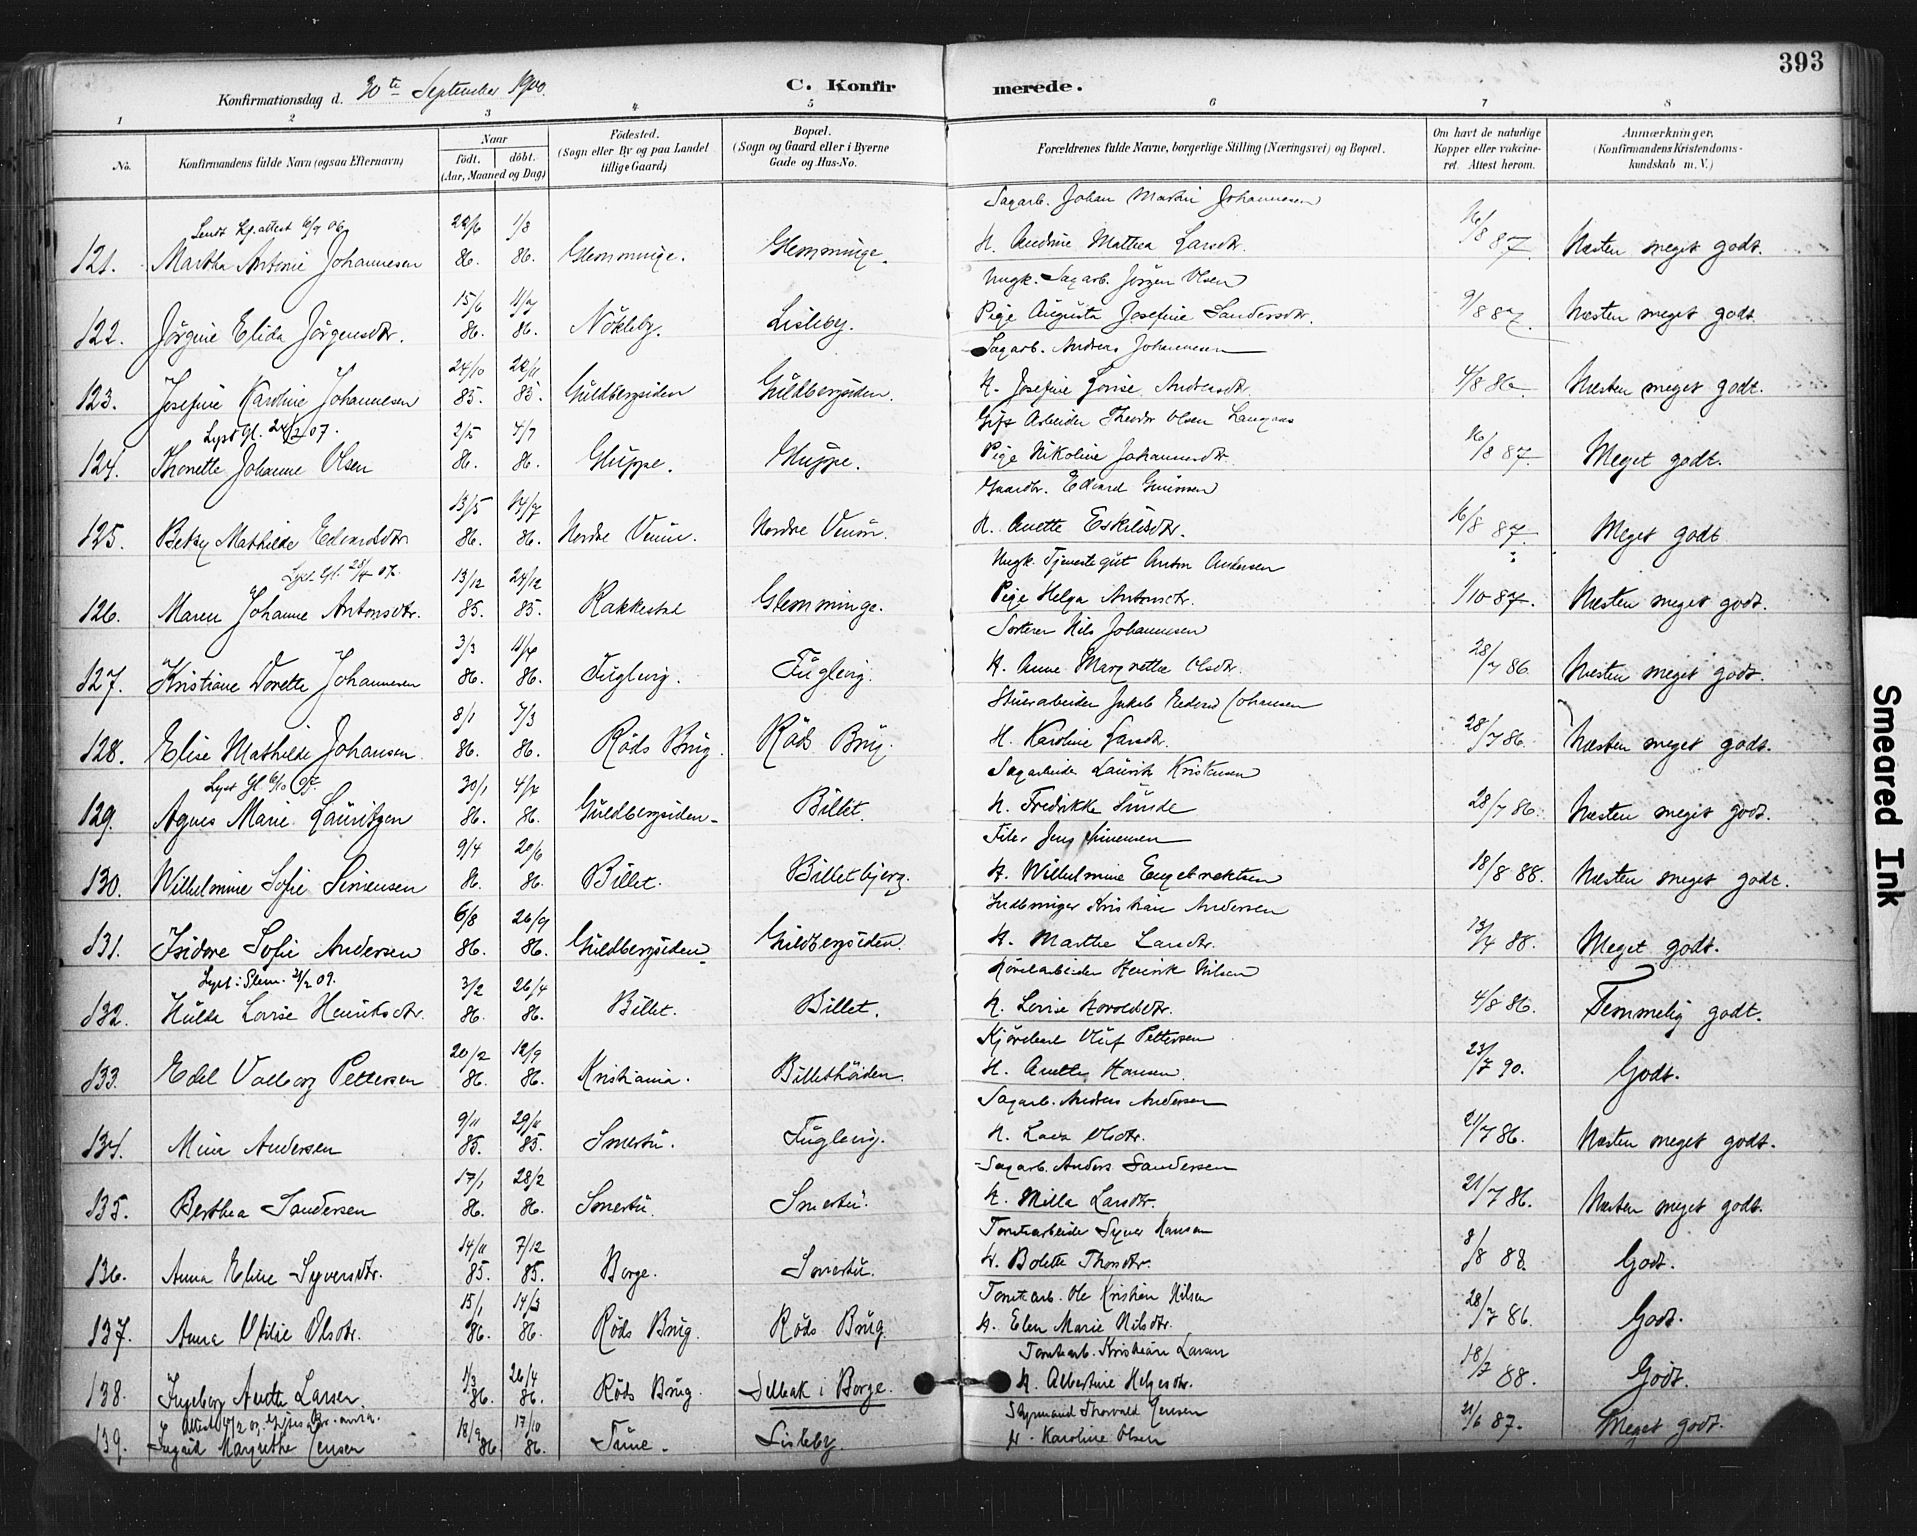 393
Konfirmationsdag d. 30te September 1900.
C. Konfirmerede.
1 2 3 4 5 6 7 8
No. Konfirmandens fulde Navn (ogsaa Efternavn) Naar født. døbt. (Aar, Maaned og Dag) Fødested. (Sogn eller By og paa Landet tillige Gaard) Bopæl. (Sogn og Gaard eller i Byerne Gade og Hus-No. Forældrenes fulde Navne, borgerlige Stilling (Næringsvei) og Bopæl. Om havt de naturlige Kopper eller vakcineret. Attest herom. Anmærkninger, (Konfirmandens Kristendomskundskab m. V.)
Sagarb. Johan Martin Johannesen
121. Martha Antonie Johannesen 86. 1/8 86. Glemminge. Glemminge. H. Andrine Mathea Larsdtr. 16/8 87. Næsten meget godt.
Ungk. Sagarb. Jørgen Olsen
122. Jørgine Elida Jørgensdtr. 15/6 86. 86. Nökleby. Lisleby. Pige Augusta Josefine Sandersdtr. 9/8 87. Næsten meget godt.
Sagarb. Andreas Johannesen
123. Josefine Karoline Johannesen 24/10 85. 85. Guldbergsiden Guldbergsiden. H. Josefine Lovise Andersdtr. 4/8 86 Næsten meget godt.
Lyst Gl. 07.
Gift Arbeider Theodor Olsen
124. Thonette Johanne Olsen 2/5 86. 4/7 86. Gluppe. Gluppe. Pige Nikoline Johannesdtr. 16/8 87. Meget godt.
Gaardbr. Edvard
125. Betzy Mathilde Edvardsdtr 13/5 86. 86. Nordre Nordre H. Anette Eskilsdtr. 16/8 87. Meget godt
Lyst Gl. 07.
Ungk. Tjenestegut Anton Andersen
126. Maren Johanne Antonsdtr. 13/12 85. 24/12 85. Rakkestad Glemminge. Pige Helga Antonsdtr. 1/10 87. Næsten meget godt.
Sorterer Nils Johannesen
127. Kristiane Dorette Johannesen 3/3 86. 86. Fuglevig. Fuglevig. H. Anne Margrethe Olsdtr. 28/7 86 Næsten meget godt.
128. Elise Mathilde Johansen 8/1 86. 7/3 86. Röds Brug. Röds Brug. H. Karoline Larsdtr. 28/7 86. Næsten meget godt.
Sagarbeider Laurits Kristensen
129. Agnes Marie Lauritzen 30/1 86. 4/2 86. Guldbergsiden Billet. H. Fredrikke Sunde 28/7 86. Næsten meget godt.
Filer Jens Simensen
130. Wilhelmine Sofie Simensen 9/4 86. 20/6 86. Billet. Billetbjerg. H. Wilhelmine Engebrektsen 18/8 88. Næsten meget godt.
Kristian Andersen
131. Isidore Sofie Andersen 6/8 86. 26/9 86. Guldbergsiden Guldbergsiden. H. Marthe Larsdtr. 13/7 88. Meget godt.
Henrik Nilsen
132. Hulda Lovise Henriksdtr. 3/2 86. 26/4 86. Billet. Billet. H. Lovise 4/8 86. Temmelig godt.
Oluf Pettersen
133. Edel Valborg Pettersen 20/2 86. 12/9 86. Kristiania. Billethöiden. H. Anette Hansen. 23/7 90. Godt.
Sagarb. Andreas Andersen
134. Mina Andersen 9/11 85. 29/11 85. Smertu. Fuglevig. H. Lova Olsdtr. 21/7 86. Næsten meget godt.
Sagarb. Anders Sandersen
135. Berthea Sandersen 17/1 86. 28/2 86. Smertu. Smertu. H. Milla Larsdtr. 21/7 86. Næsten meget godt.
Tomtearbeider Syver Hansen
136. Anna Eline Syversdtr. 14/11 85. 7/12 85. Borge. Smertu. H. Bolette Thorsdtr. 8/8 88. Godt.
Tomtearb. Ole Kristian Nilsen
137. Anna Otilie Olsdtr. 15/1 86. 14/3 86. Röds Brug. Röds Brug. H. Elen Marie Nilsdtr. 28/7 86. Godt.
Tomtearb. Kristian Larsen
138. Ingeborg Anette Larsen. 1/3 86. 26/4 86. Röds Brug. Selbak i Borge. H. Albertine Helgesdtr. 18/7 88. Godt.
Thorvald Jensen
139. Ingrid Margrethe Jensen 18/9 86 17/10 86. Tune. Lisleby. H. Karoline Olsen 21/6 87. Meget godt.
Smeared Ink